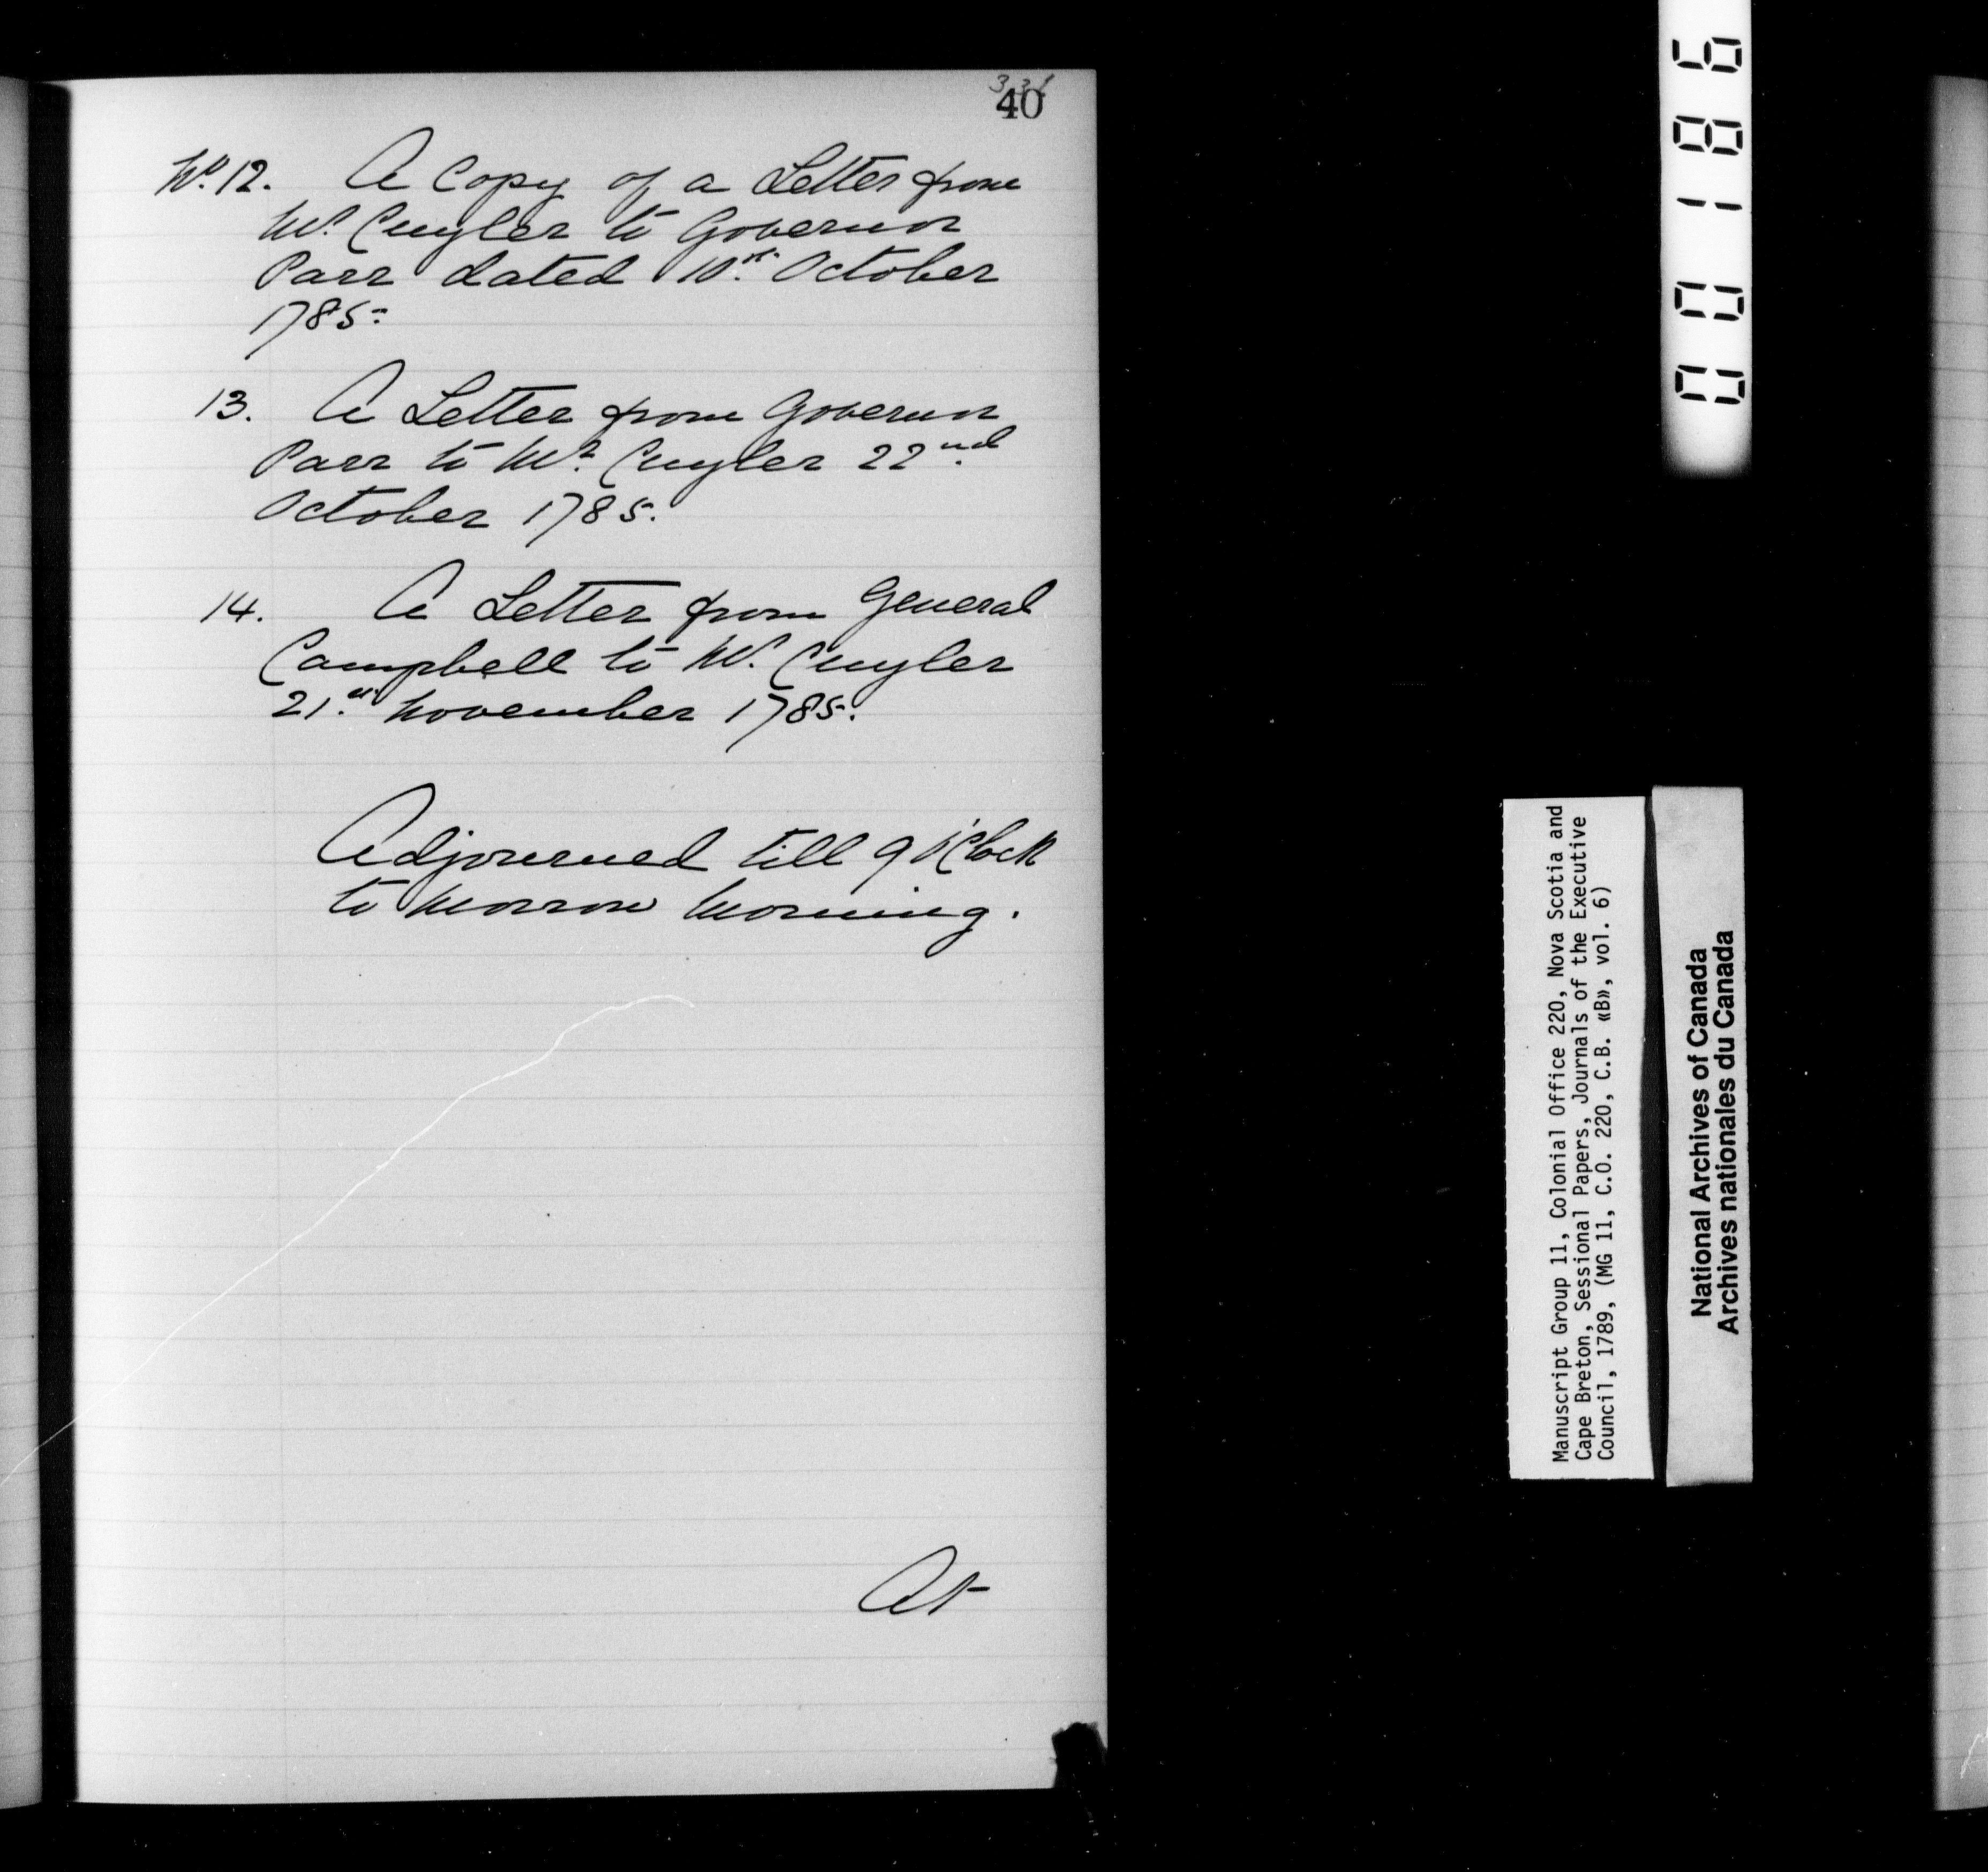 40
No. 12. A Copy of a Letter from
Mr. Cuyler to Governor
Parr dated 10th. October
1785.
13. A Letter from Governor
Parr to Mr. Cuyler 22nd.
October 1785.
14. A Letter from General
Campbell to Mr. Cuyler
21st. November 1785.
Adjourned till 9 o'Clock
to Morrow Morning.
At
001186
Manuscript Group 11, Colonial Office 220, Nova Scotia and
Cape Breton, Sessional Papers, Journals of the Executive
Council, 1789, (MG 11, C.O. 220, C.B. «B», vol. 6)
National Archives of Canada
Archives nationales du Canada